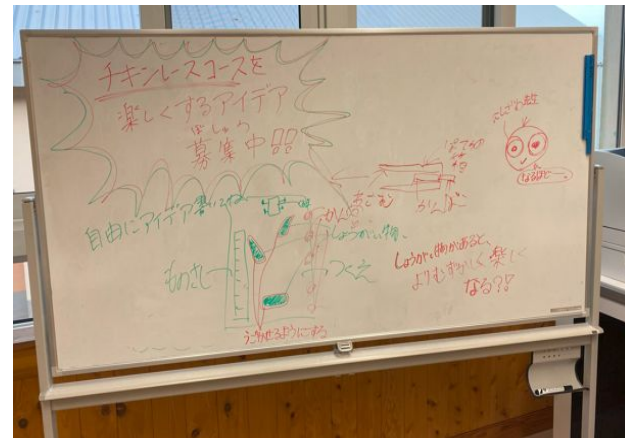 チキンレースコースを
楽しくするアイデア
ぼしゅう
募集中!!
自由にアイデア書いてね
ものさし
しょうがい物
つくえ
うごかせるようにする
かんばこ
なるほど〜
しょうがい物があると、
よりむずかしく楽しく
なる?!